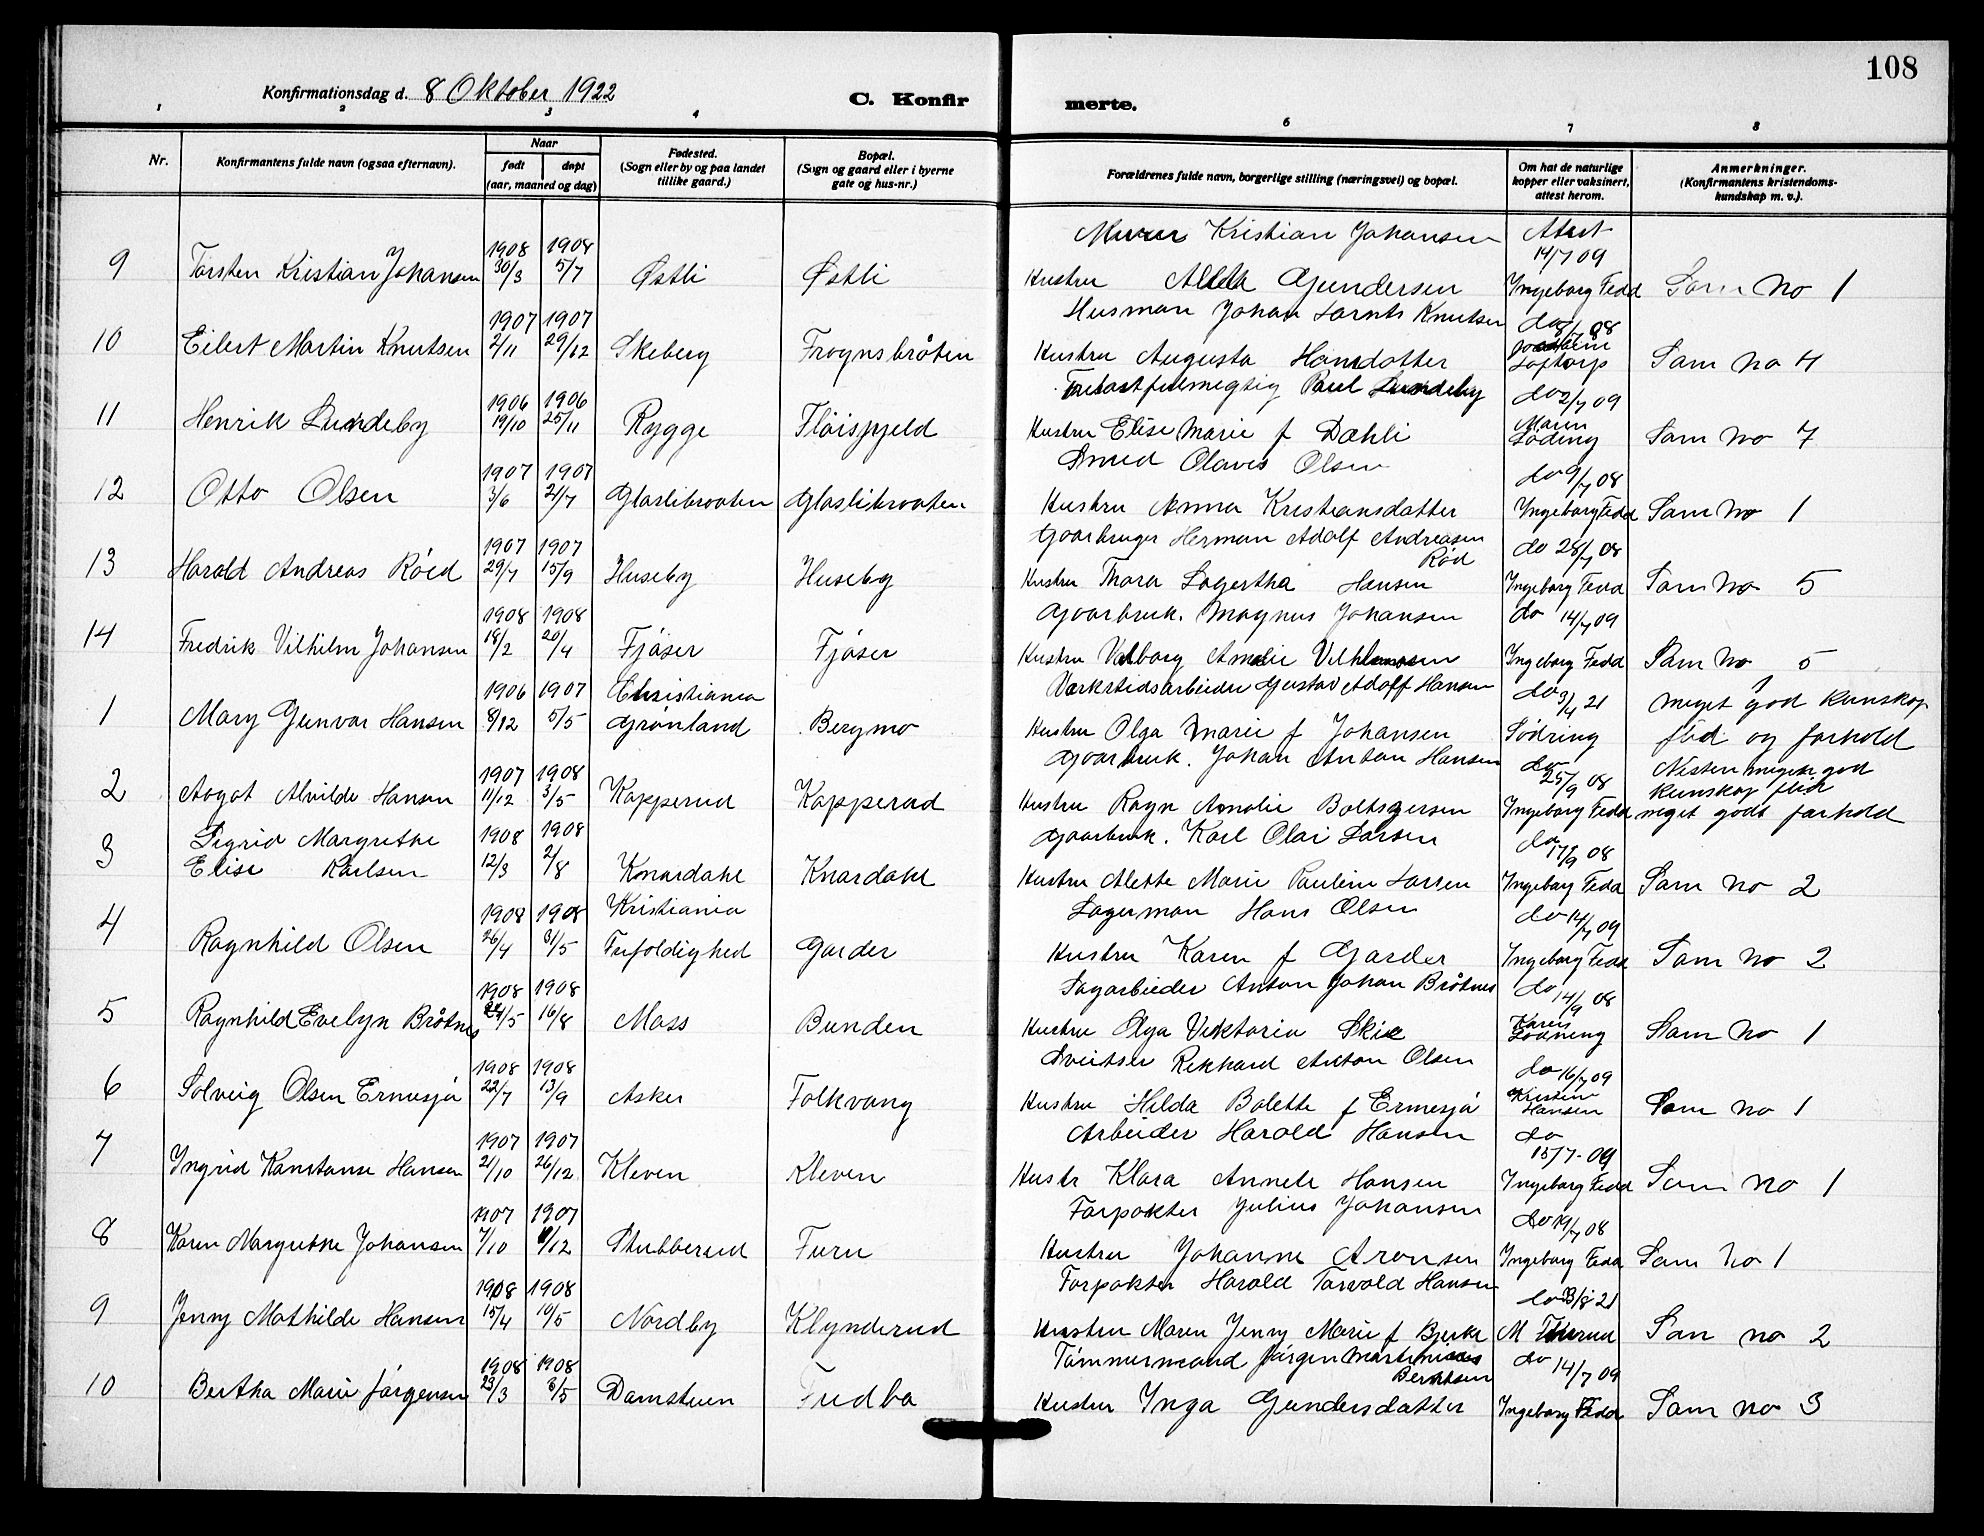 108
Konfirmationsdag d. 8 Oktober 1922
C. Konfirmerte.
1 2 3 4 6 7 8
Nr.
Konfirmantens fulde navn (ogsaa efternavn).
Naar
født
døpt
(aar, maaned og dag)
Fødested.
(Sogn eller by og paa landet
tillike gaard.)
Bopæl.
(Sogn og gaard eller i byerne
gate og hus-nr.)
Forældrenes fulde navn, borgerlige stilling (næringsvei) og bopæl.
Om hat de naturlige
kopper eller vaksinert,
attest herom.
Anmerkninger.
(Konfirmantens kristendoms-
kundskap m. v.).
1908 1908 Murer Kristian Johansen Attest 14/7 09
9 Torsten Kristian Johansen 30/3 5/7 Østli Østli Hustru Gundersen Ingeborg Fedd Som No 1
1907 1907 Husman Johan Knutsen do 8/7 08
10 Eilert Martin Knutsen 2/11 29/12 Skeberg Frognsbråten Hustru Augusta Hansdatter Loftorp Som No 4
1906 1906 Paul Lundeby do 2/7 09
11 Henrik Lundeby 19/10 25/11 Rygge Fløispjeld Hustru Elise Marie f Dæhli Maren Söding Som No 7
1907 1907 Smed Olaves Olsen do 9/7 08
12 Otto Olsen 3/6 21/7 Glaslibraaten Glaslibraaten Hustru Anna Kristiansdatter Ingeborg Fedd Som No 1
1907 1907 Gaarbruger Herman Adolf Andreasen Rød do 28/7 08
13 Harold Andreas Röed 29/7 15/9 Huseby Huseby Hustru Thora Lagertha Hansen Ingeborg Fedd Som No 5
1908 1908 Gaarbruk. Magnus Johansen do 14/7 09
14 Fredrik Vilhelm Johansen 18/2 20/4 Fjöser Fjöser Hustru Valborg Amalie Ingeborg Fedd Som No 5
1906 1907 Christiania Værkstedsarbeider Gustav Adolf Hansen do 3/4 21 Meget god kunskap
1 Mary Gunvor Hansen 8/12 5/5 Grönland Bergmo Hustru Olga Marie f Johansen Södring flid og forhold
1907 1908 Gaarbruk. Johan Anton Hansen do 25/9 08 Nesten meget god kunskap flid
2 Aagot Alvilde Hansen 11/12 3/5 Kopperud Kopperud Hustru Ragn Amalie Boltsgersen Ingeborg Fedd meget godt forhold
Sigrid Margrethe 1908 1908 Gaarbruk. Karl Olai Larsen do 17/9 08
3 Elise Karlsen 12/3 2/8 Knardahl Knardahl Hustru Alette Marie Pauline Larsen Ingeborg Fedd Som No 2
1908 1908 Kristiania Lagerman Hans Olsen do 14/7 09
4 Ragnhild Olsen 26/4 31/5 Trefoldighed Garder Hustru Karen f Garder Ingeborg Fedd Som No 2
1908 1908 Sagarbeider Anton Johan Bråtnes do 14/9 08
5 Ragnhild Evelyn Bråtnes 24/5 16/8 Moss Bunden Hustru Olga Viktoria Skie Karen Södring Som No 1
1908 1908 Sveitser Rikhard Anton Olsen do 16/7 09
6 Solveig Olsen Ermesjö 22/7 13/9 Asker Folkvang Hustru Hilda Bolette f Ermesjö Kristine Hansen Som No 1
1907 1907 Arbeider Harold Hansen do 15/7-09
7 Ingrid Konstanse Hansen 21/10 26/12 Kleven Kleven Hustr Klara Annete Hansen Ingeborg Fedd Som no 1
1907 1907 Forpakter Julius Johansen do 19/7 08
8 Karen Margrethe Johansen 7/10 /12 Stubberud Furu Hustru Johanne Aronsen Ingeborg Fedd Som No 1
1908 1908 Forpakter Harold Torvold Hansen do 23/8 21
9 Jenny Mathilde Hansen 15/4 10/5 Nordby Klynderud Hustru Maren Jenny Marie f Bjerke M Som no 2
1908 1908 Tömmermand Jörgen Martinius Berntsen do 14/7 09
10 Bertha Marie Jörgensen 23/3 3/5 Damstuen Hustru Inga Gundersdatter Ingeborg Fedd Som no 3